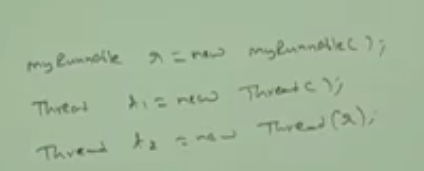 myRunnable r = new myRunnable();
Thread t1 = new Thread();
Thread t2 = new Thread(r);